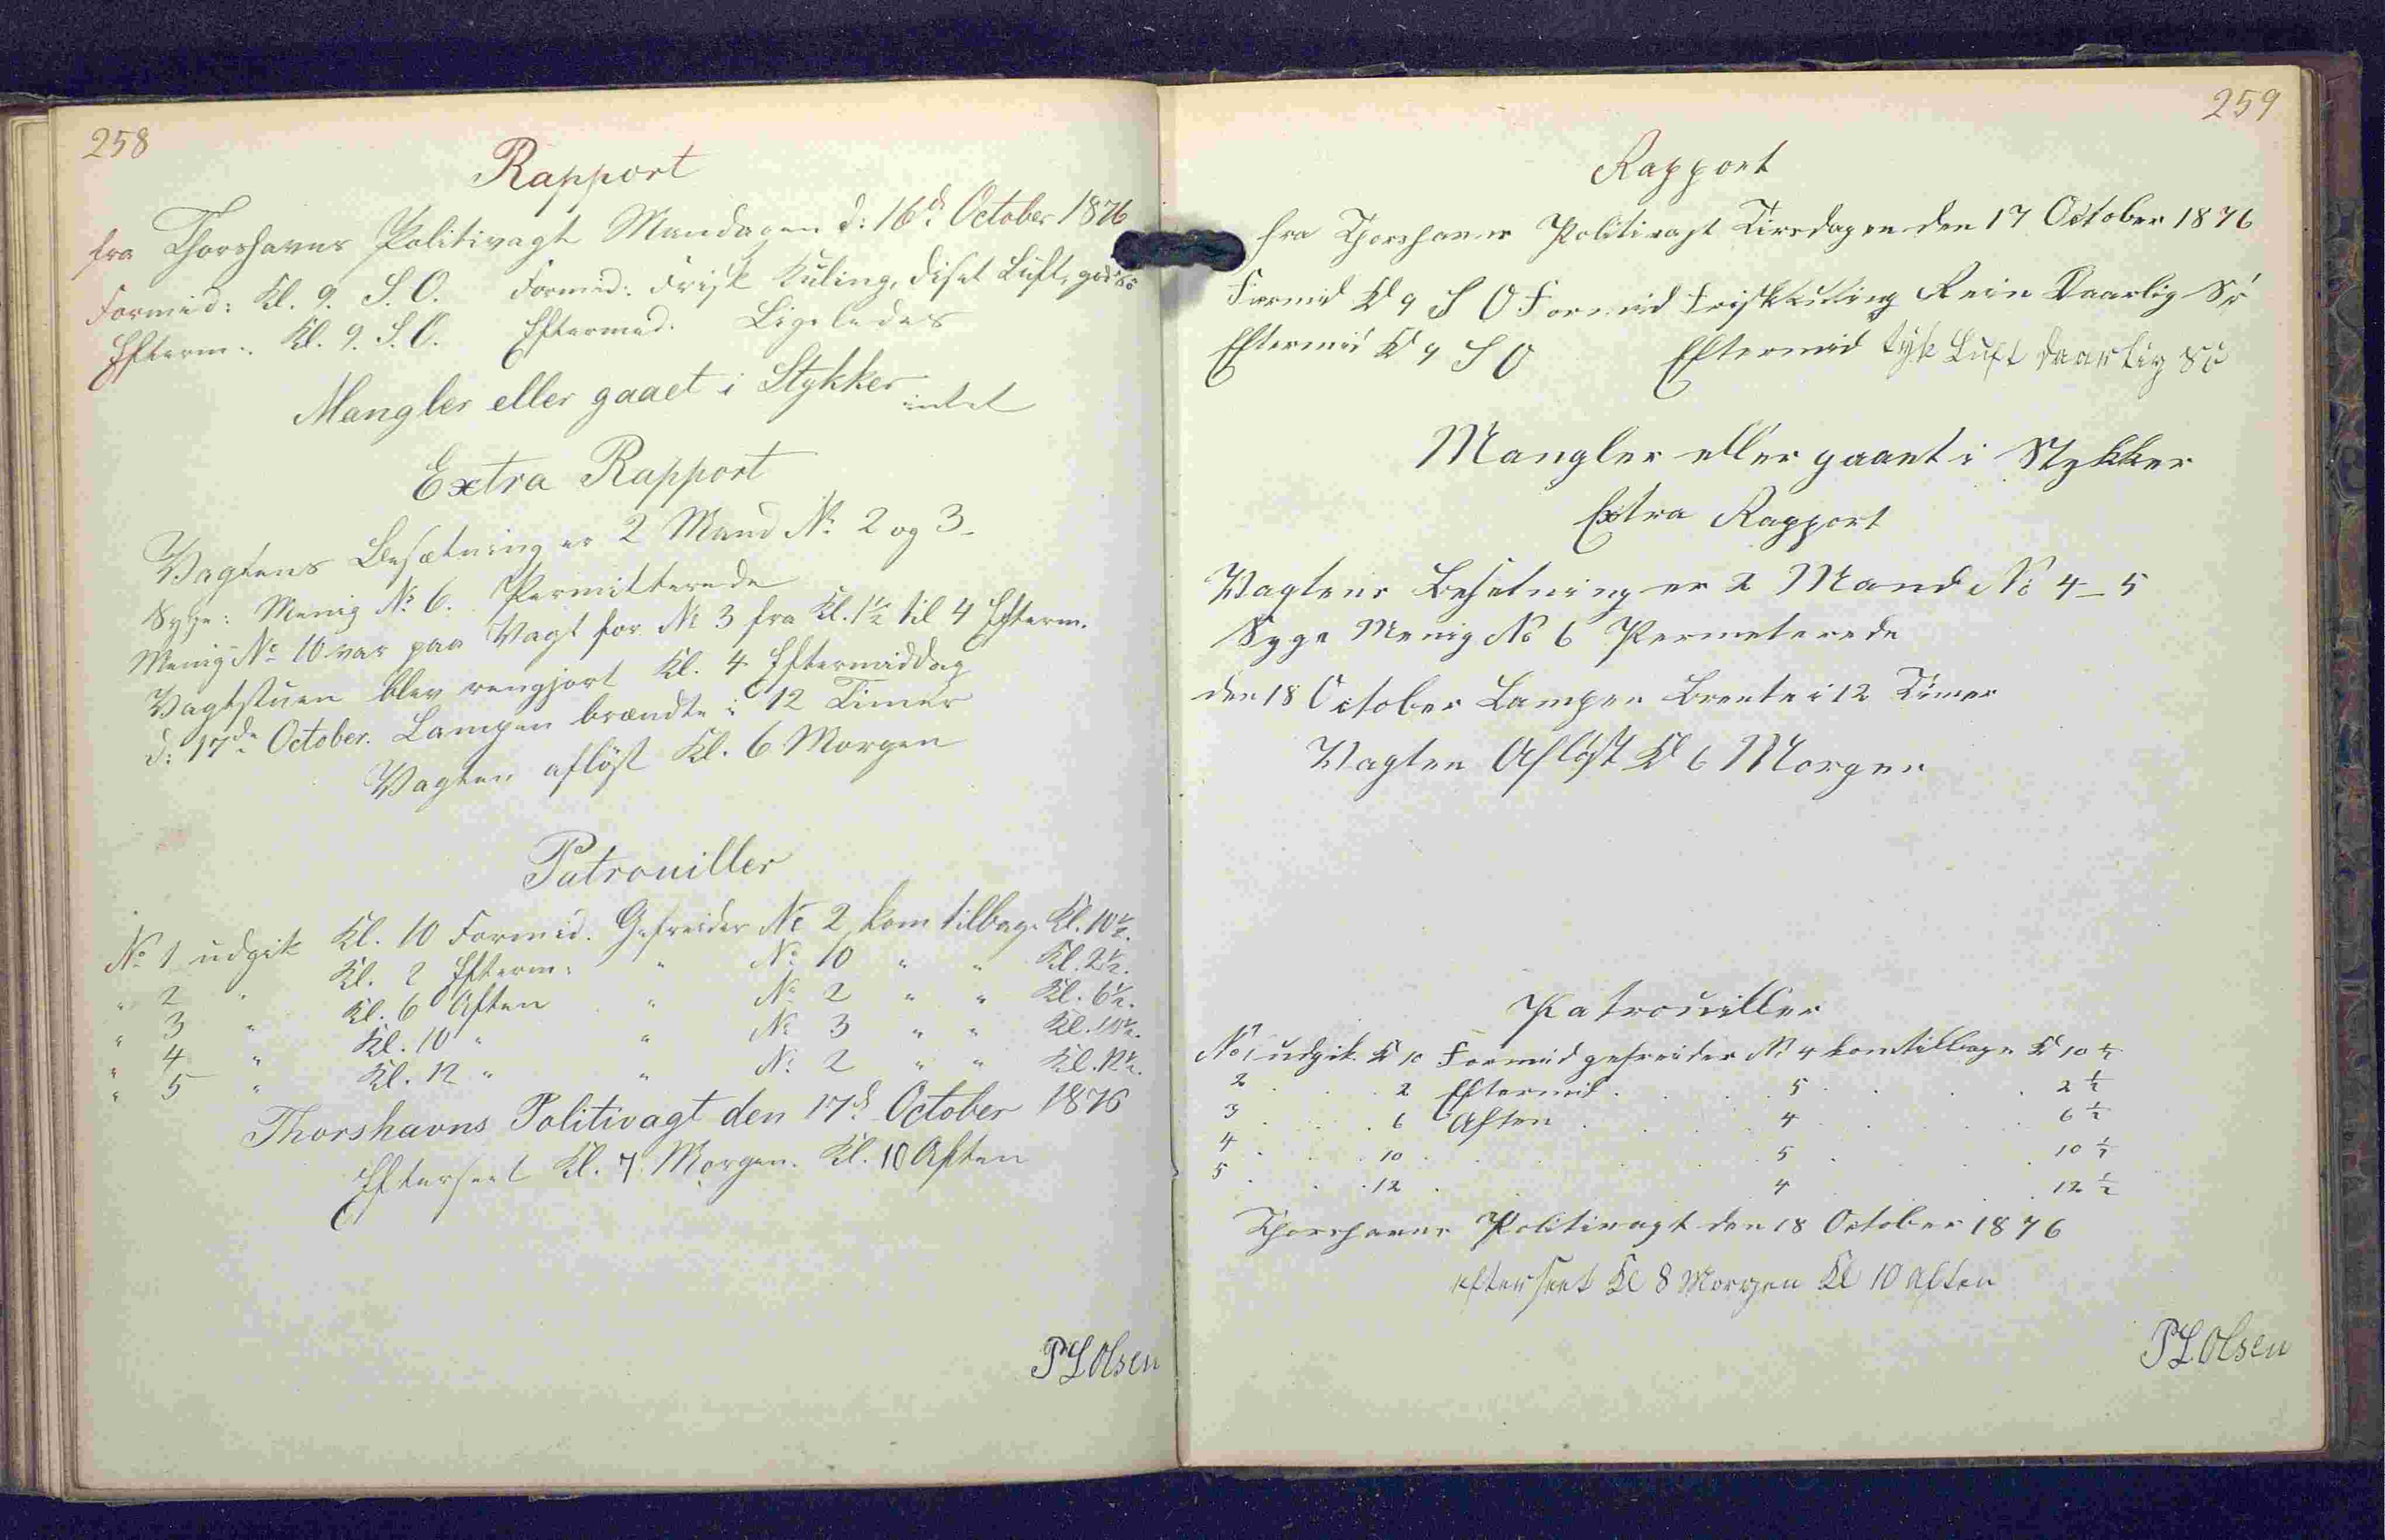 258
Rapport
fra Thorshavns Politivagt Mandagen d: 16de October 1876
Formid: Kl. 9. S.O. Formid: Frisk Kuling, diset Luft, god Sö
Efterm: Kl. 9. S.O. Eftermed. Ligeledes
Mangler eller gaaet i Stykker intet
Extra Rapport
Vagtens Besætning er 2 Mand No 2 og 3-
Syge: Menig No 6. Permitterede
Menig No 10 var paa Vagt for No 3 fra Kl. 1½ til 4 Efterm.
Vagtstuen blev rengjort Kl. 4 Eftermiddag
d: 17de October. Lampen brændte i 12 Timer
Vagten aflöst Kl. 6 Morgen
Patrouiller
No 1 udgik Kl. 10 Formid. Gefreider No 2 kom tilbage Kl. 10½.
" 2 " Kl. 2 Efterm: " No 10 " " Kl. 2½.
" 3 " Kl. 6 Aften " No 2 " " Kl. 6½.
" 4 " Kl. 10 " " No 3 " " Kl. 10½.
" 5 " Kl. 12 " " No 2 " " Kl. 12½.
Thorshavns Politivagt den 17de October 1876
Efterseet Kl. 7 Morgen. Kl. 10 Aften
PLOlsen
259
Rapport
fra Thorshavns Politivagt Tirsdagen den 17 October 1876
Formid Kl 9 S O Formid Friskkuling Rein Daarlig Sö
Eftermid Kl 9 S O Eftermid tyk Luft daarlig Sö
Mangler eller gaaet i Stykker
Extra Rapport
Vagtens Besetning er 2 Mand No 4-5
Syge Menig No 6 Permeterede
den 18 October Lampen Brente i 12 Timer
Vagten Aflöst Kl 6 Morgen
Patrouiller
No 1 udgik Kl 10 Formid gefreider No 4 kom tilbage Kl 10 ½
2 . . . 2 Eftermid . . . 5 . . . 2 ½
3 . . . 6 Aften . . . 4 . . . 6 ½
4 . . . 10 . . . 5 . . . 10 ½
5 . . . 12 . . . 4 . . . 12 ½
Thorshavns Politivagt den 18 October 1876
efterseet Kl 8 Morgen Kl 10 Aften
PLOlsen